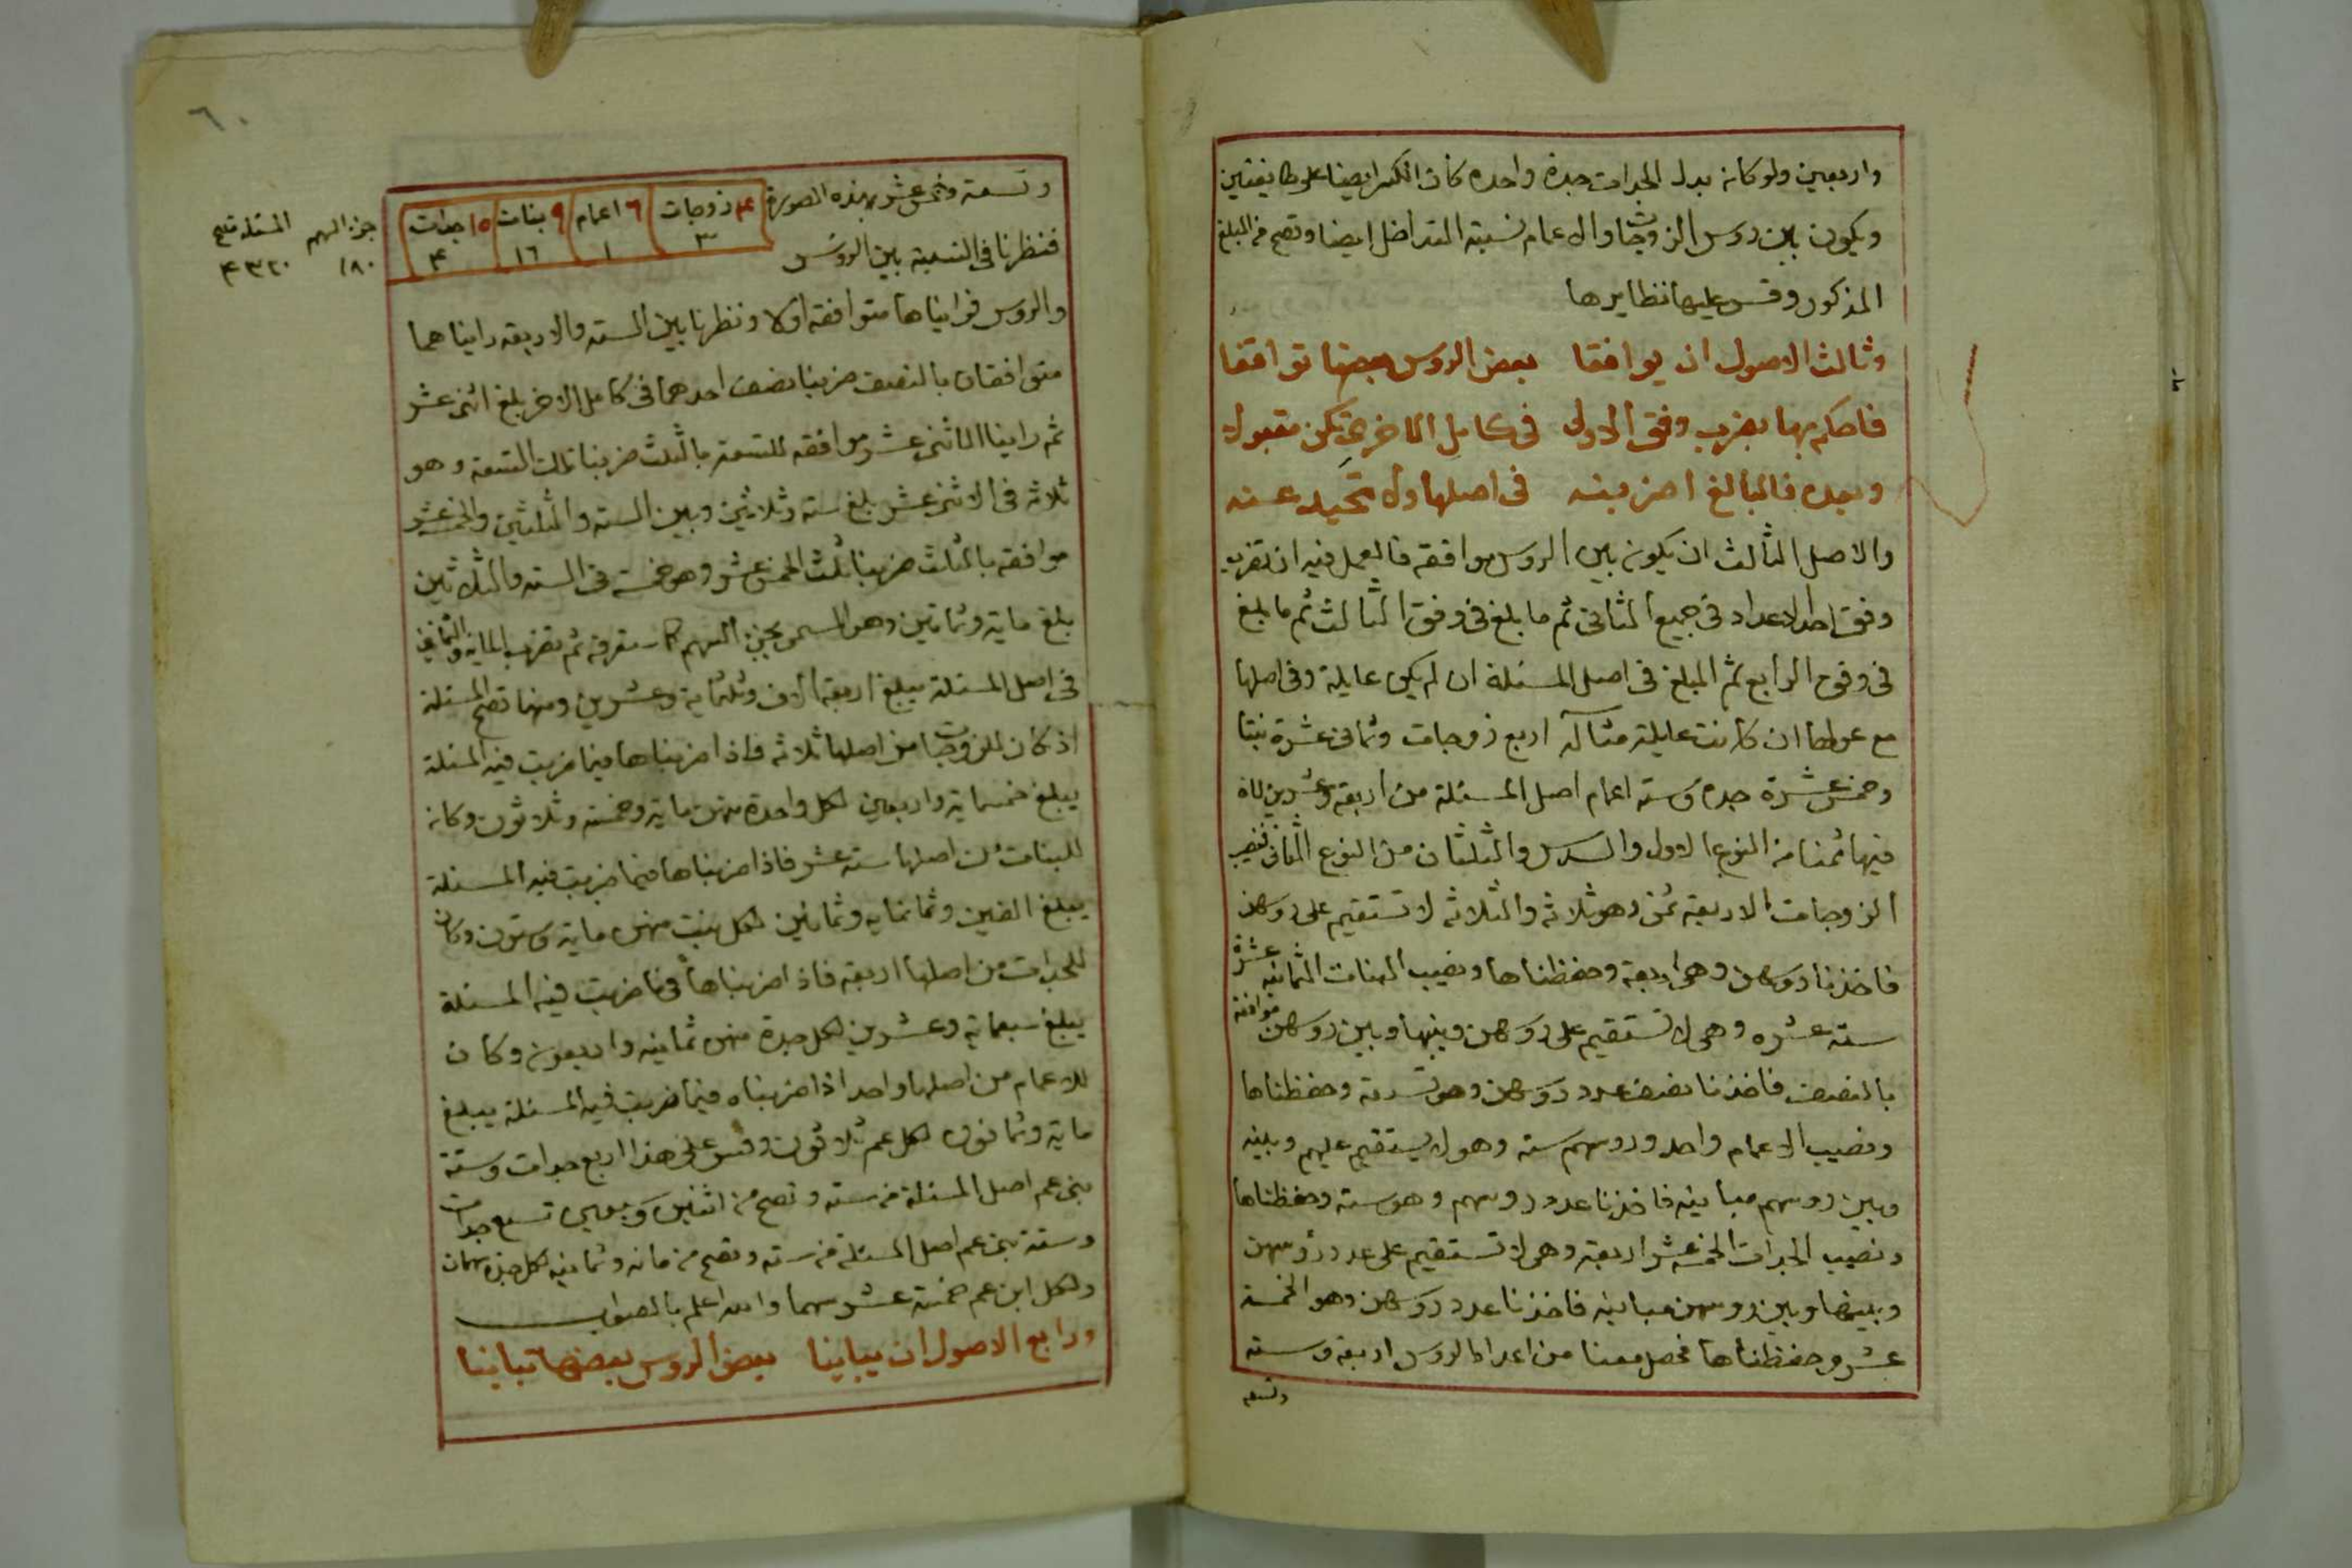 واربعين ولو كانه بدل الجدات جدة واحده كان الكسر ايضا على طايفتين
ويكون بين روس الزوجات والاعمام نسبته التداخل ايضا وتصح من المبلغ
المذكور وقس عليها نظايرها
وثالث الاصول ان يوافقا بعض الروس بعضها توافقا
فاحكم بها بضرب وفق الاولى في كامل الاخر تكن مقبولا
وبعده فالبالغ اضربنه في اصلها ولا تحيد عنه
والاصل الثالث ان يكون بين الروس موافقه فالعمل فيه ان تضرب
وفق احد الاعداد في جميع الثاني ثم ما بلغ في وفق الثالث ثم ما بلغ
في وفق الرابع ثم المبلغ في اصل المسئلة ان لم يكن عايلة وفي اصلها
مع عولها ان كانت عايلة مثاله اربع زوجات وثماني عشرة بنتا
وخمس عشرة جده وسته اعمام اصل المسئلة من اربعه وعشرين لان
فيها ثمنا من النوع الاول والسدس والثلثان من النوع الثاني فنصيب
الزوجات الاربعه ثمن وهو ثلاثه والثلاثه لا تستقيم على روسهن
فاخذنا روسهن وهي اربعة وحفظناها ونصيب البنات الثمانيه عشرة
سته عشره وهي لا تستقيم على روسهن وبينها وبين روسهن موافقه
بالنصف فاخذنا نصف عدد روسهن وهو تسعة وحفظناها
ونصيب الاعمام واحد وروسهم سته وهو لا يستقيم عليهم وبينه
وبين روسهم مباينه فاخذنا عدد روسهم وهو سته وحفظناها
ونصيب الجدات الخمسة عشر اربعة وهي لا تستقيم على عدد روسهن
وبينها وبين روسهن مباينه فاخذنا عدد روسهن وهو الخمسة
عشر وحفظناها فحصل معنا من اعداد الروس اربعة وسته
وتسعه
٦٠
وتسعة وخمس عشر بهذه الصورة
٤ زوجات ٦ اعمام ٩ بنات ١٥ جدات
٣ ١ ١٦ ٤
جزء السهم ١٨٠
المسئلة تصح ٤٣٢٠
فنظرنا في النسبة بين الروس
والروس فرايناها متوافقه اولا ونظرنا بين السته والاربعه رايناهما
متوافقان بالنصف ضربنا نصف احدهما في كامل الاخر بلغ اثني عشر
ثم راينا الاثني عشر موافقه للتسعة بالثلث ضربنا ثلث التسعه وهو
ثلاثه في الاثني عشر بلغ سته وثلاثين وبين السته والثلثين والخمس عشر
موافقه بالثلث ضربنا ثلث الخمس عشر وهو خمسة في السته والثلاثين
بلغ مايه وثمانين وهو المسمى بجزء السهم كما ستعرفه ثم تضرب المايه والثمانين
في اصل المسئلة يبلغ اربعة الاف وثلثماية وعشرين ومنها تصح المسئلة
اذ كان للزوجات من اصلها ثلاثه فاذا ضربناها فيما ضربت فيه المسئلة
يبلغ خمسماية واربعين لكل واحدة منهن مايه وخمسة وثلاثون وكانه
للبنات من اصلها سته عشر فاذا ضربناها فيما ضربت فيه المسئلة
يبلغ الفين وثمانمايه وثمانين لكل بنت منهن مايه وستون وكان
للجدات من اصلها اربعه فاذا ضربناها فيما ضربت فيه المسئلة
يبلغ سبعمايه وعشرين لكل جدة منهن ثمانيه واربعون وكان
للاعمام من اصلها واحد اذا ضربناه فيما ضربت فيه المسئلة يبلغ
مايه وثمانون لكل عم ثلاثون وقس على هذا اربع جدات وستة
بني عم اصل المسئلة من سته وتصح من اثنين وسبعين تسع جدات
وستة بني عم اصل المسئلة من سته وتصح من مائه وثمانيه لكل جدة سهمان
ولكل ابن عم خمسة عشر سهما والله اعلم بالصواب
ورابع الاصول ان يباينا بعض الروس بعضها تباينا